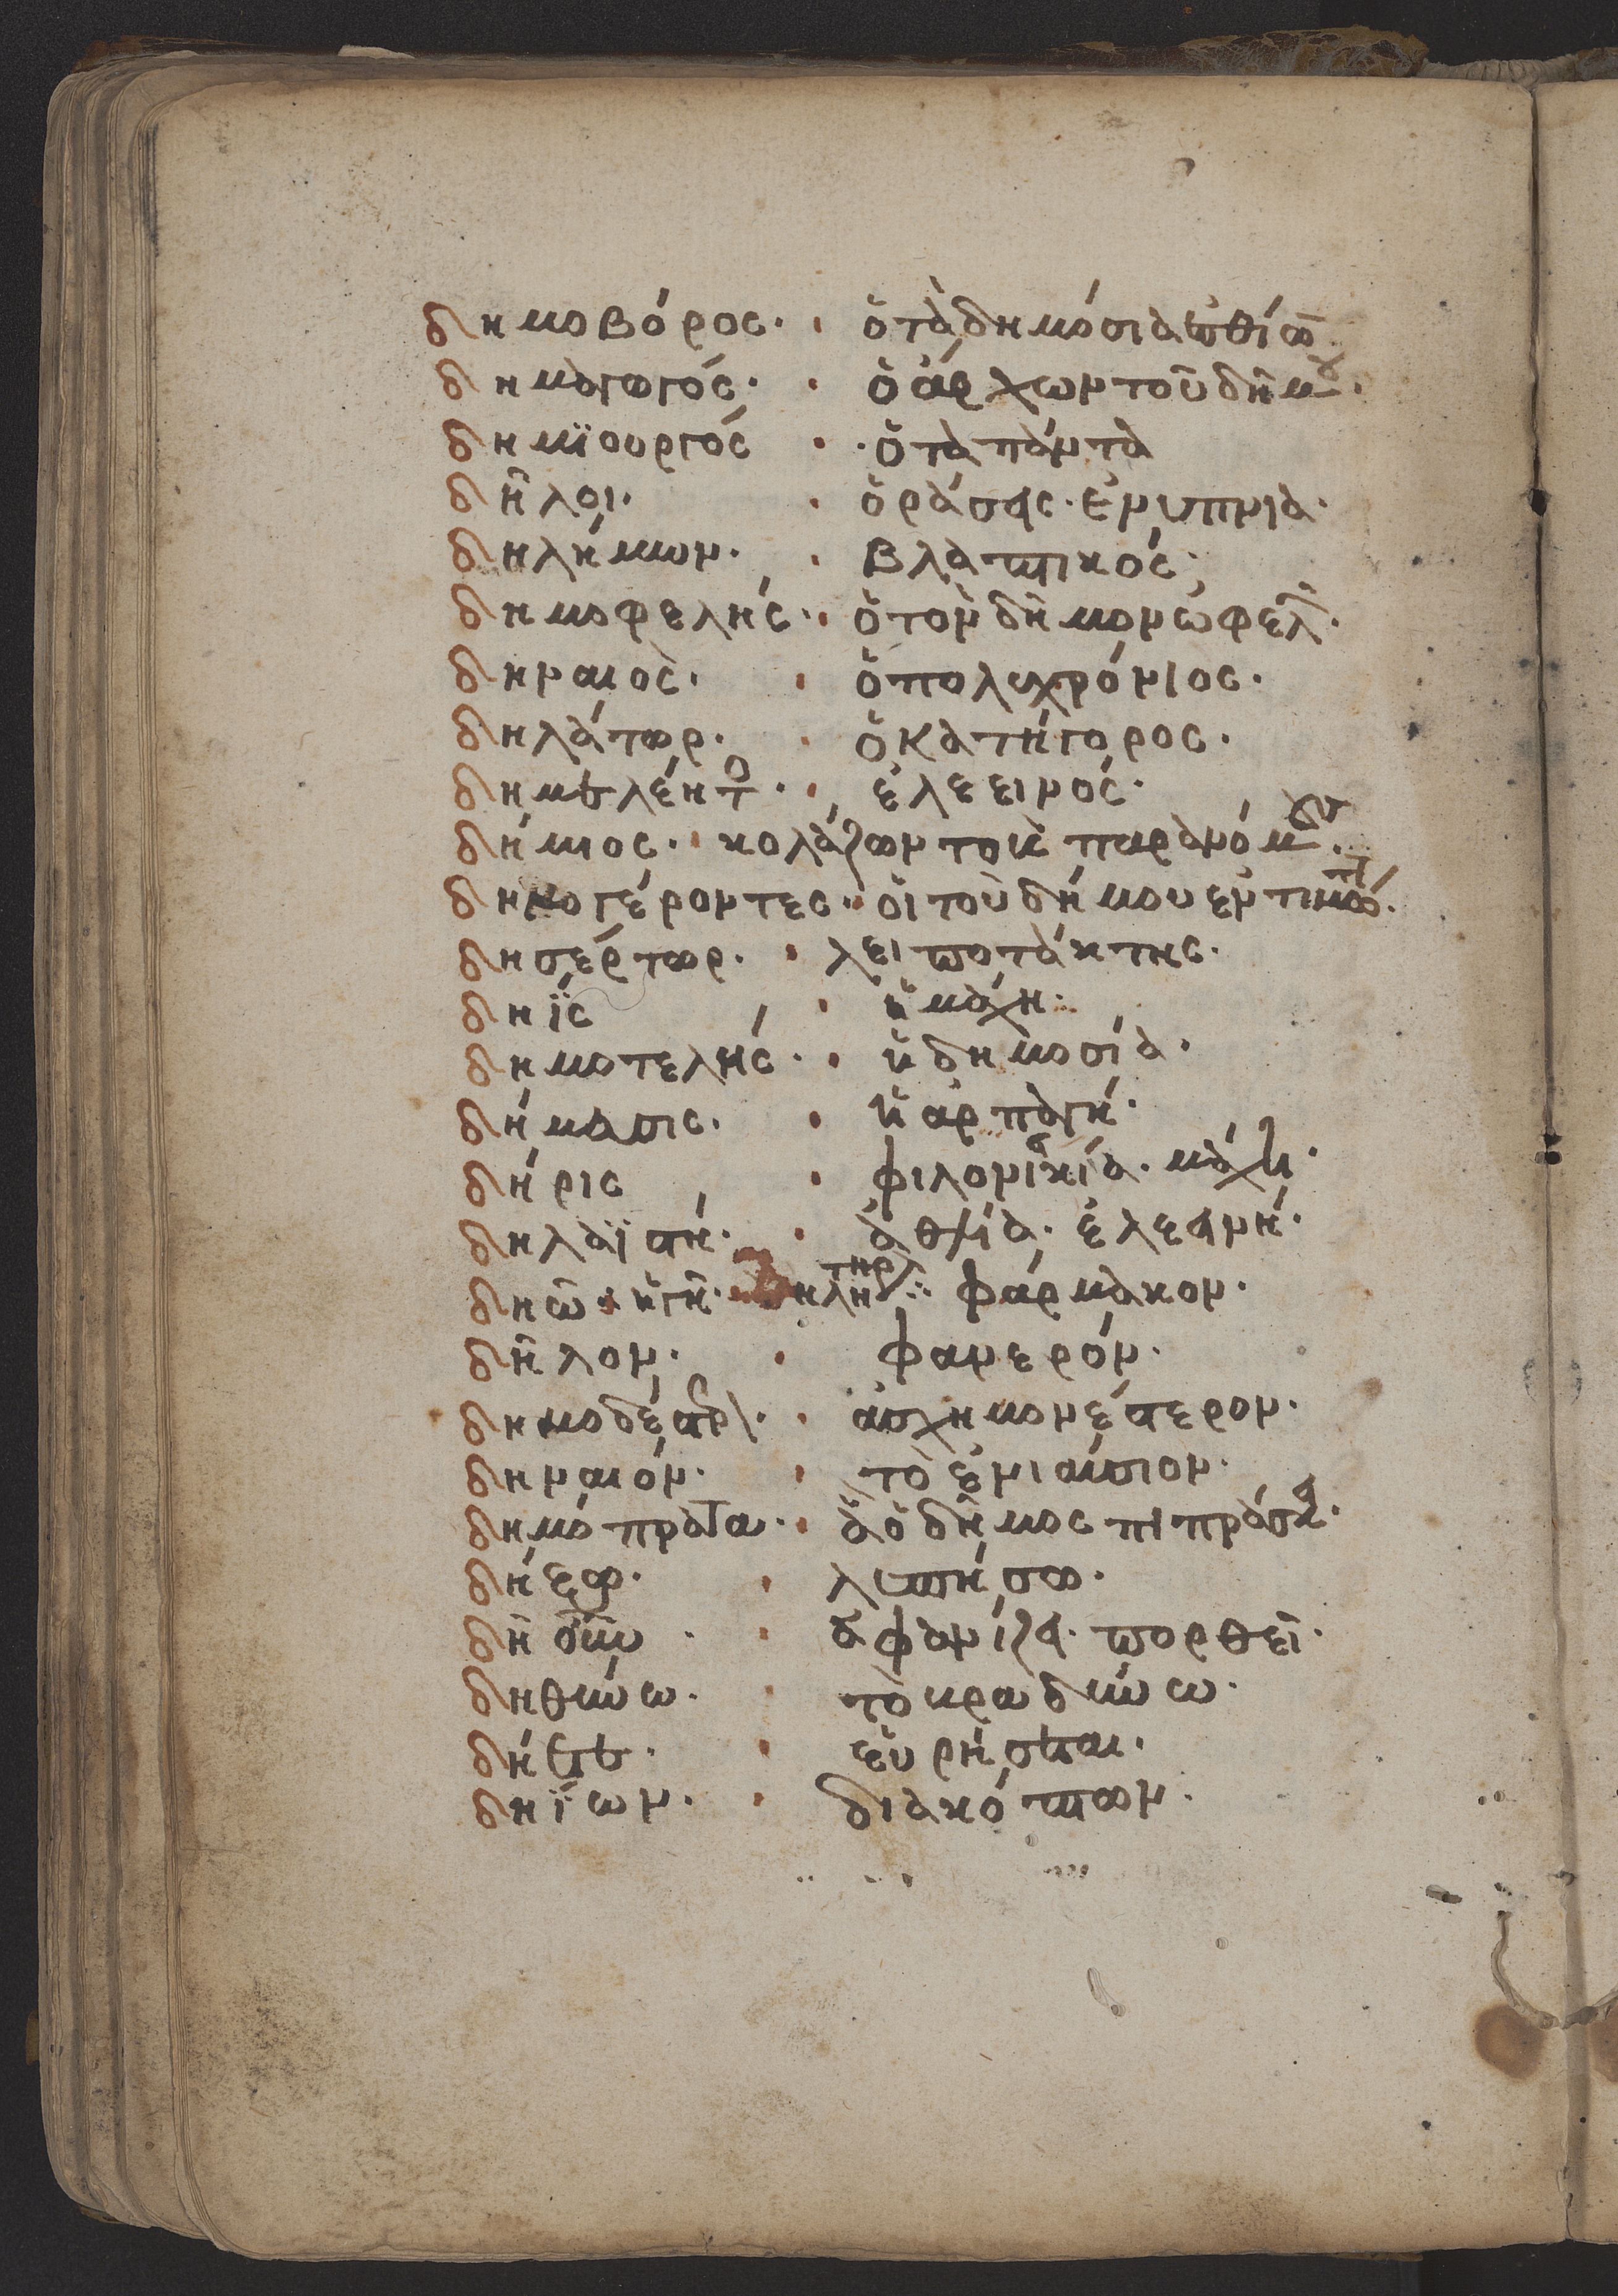 δημοβόρος · ὁ τὰ δημόσια ἐσθίων
δημαγωγός · ὁ ἄρχων τοῦ δήμου ·
δημϊουργός · ὁ τὰ πάντα
δῆλοι · ὁράσεις · ἐνυπνια ·
δηλήμων · βλαπτικός ·
δημοφελής · ὁ τὸν δῆμον ὠφελ ·
δηναιὸς · ὁ πολυχρόνιος ·
δηλάτωρ · ὁ κατήγορος ·
ἐλεεινός ·
δήμιος · κολάζων τοὺς παρανόμους ·
δημογέροντες · οἱ τοῦ δήμου ἐντιμότατοι ·
δησέρτωρ · λειποτάκτης ·
δηϊς · ἡ μάχη :
δημοτελής · ἡ δημοσία ·
δήμασις · ἡ ἁρπαγή ·
δήρις · φιλονεικία · μάχη ·
δηλαϊστή · ἀθλία · ἐλεεινή ·
δηῶ · ἡ γῆ · δηλητήριον : φάρμακον ·
δῆλον · φανερόν ·
δημοδέστερον · ἀσχημονέστερον ·
δηναιόν · τὸ ἐνιαύσιον ·
δημόπρατα · ἃ ὁ δῆμος πιπράσκει ·
δήξω · λυπήσω ·
ἀφανίζει · πορθεῖ ·
δηθύνω · τὸ βραδύνω ·
εὑρήσεται ·
δηΐων · διακόπτων ·